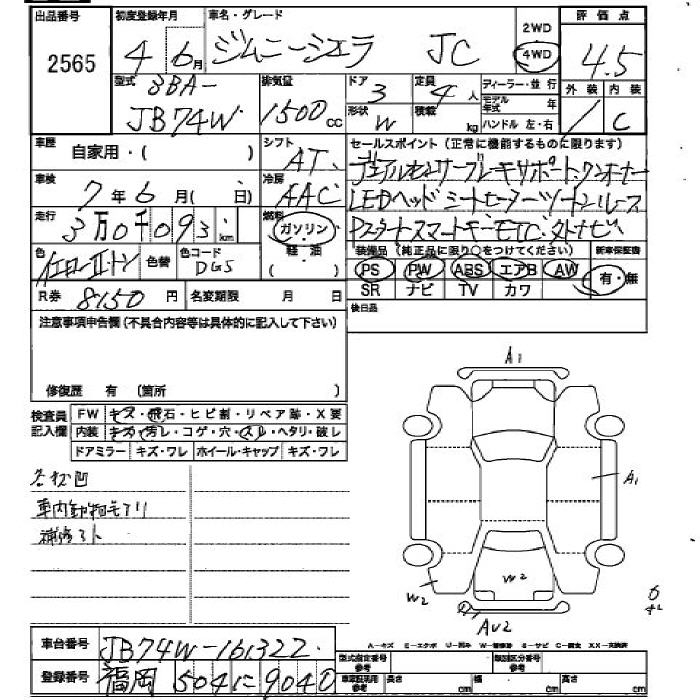 出品番号 初度登録年月 車名・グレード 2WD 評価点
2565 4年 6月 ジムニーシエラ JC 4WD 4.5
型式 3BA- 排気量 ドア 3 定員 4人 ディーラー・並行 外装 内装
JB74W 1500cc 形状 W 積載 kg モデル年式 年 C
ハンドル 左・右
車歴 自家用・( ) シフト AT セールスポイント(正常に機能するものに限ります)
デュアルセンサーブレーキサポート、ワンオーナー
車検 7年6月( 日) 冷房 AAC LEDヘッド シートヒーター
走行 3万0千093km 燃料 ガソリン・軽油・( ) Pスタート スマートキー ETC
色 色替 色コード DG5 装備品(純正品に限り○をつけてください) 新車保証書
PS PW ABS エアB AW 有・無
R券 8150円 名変期限 月 日 SR ナビ TV カワ
注意事項申告欄(不具合内容等は具体的に記入して下さい) 後日品
修復歴 有 (箇所 )
A1
検査員記入欄 FW キズ・飛石・ヒビ割・リペア跡・X要
内装 キズ・汚レ・コゲ・穴・スレ・ヘタリ・破レ
ドアミラー キズ・ワレ ホイール・キャップ キズ・ワレ
A1
車内動物モアリ
W2
W2
AU2
A-キズ
車台番号 JB74W-161322
型式指定番号 参考 類別区分番号 参考
登録番号 福岡 504 に 9040
長さ cm 幅 cm 高さ cm